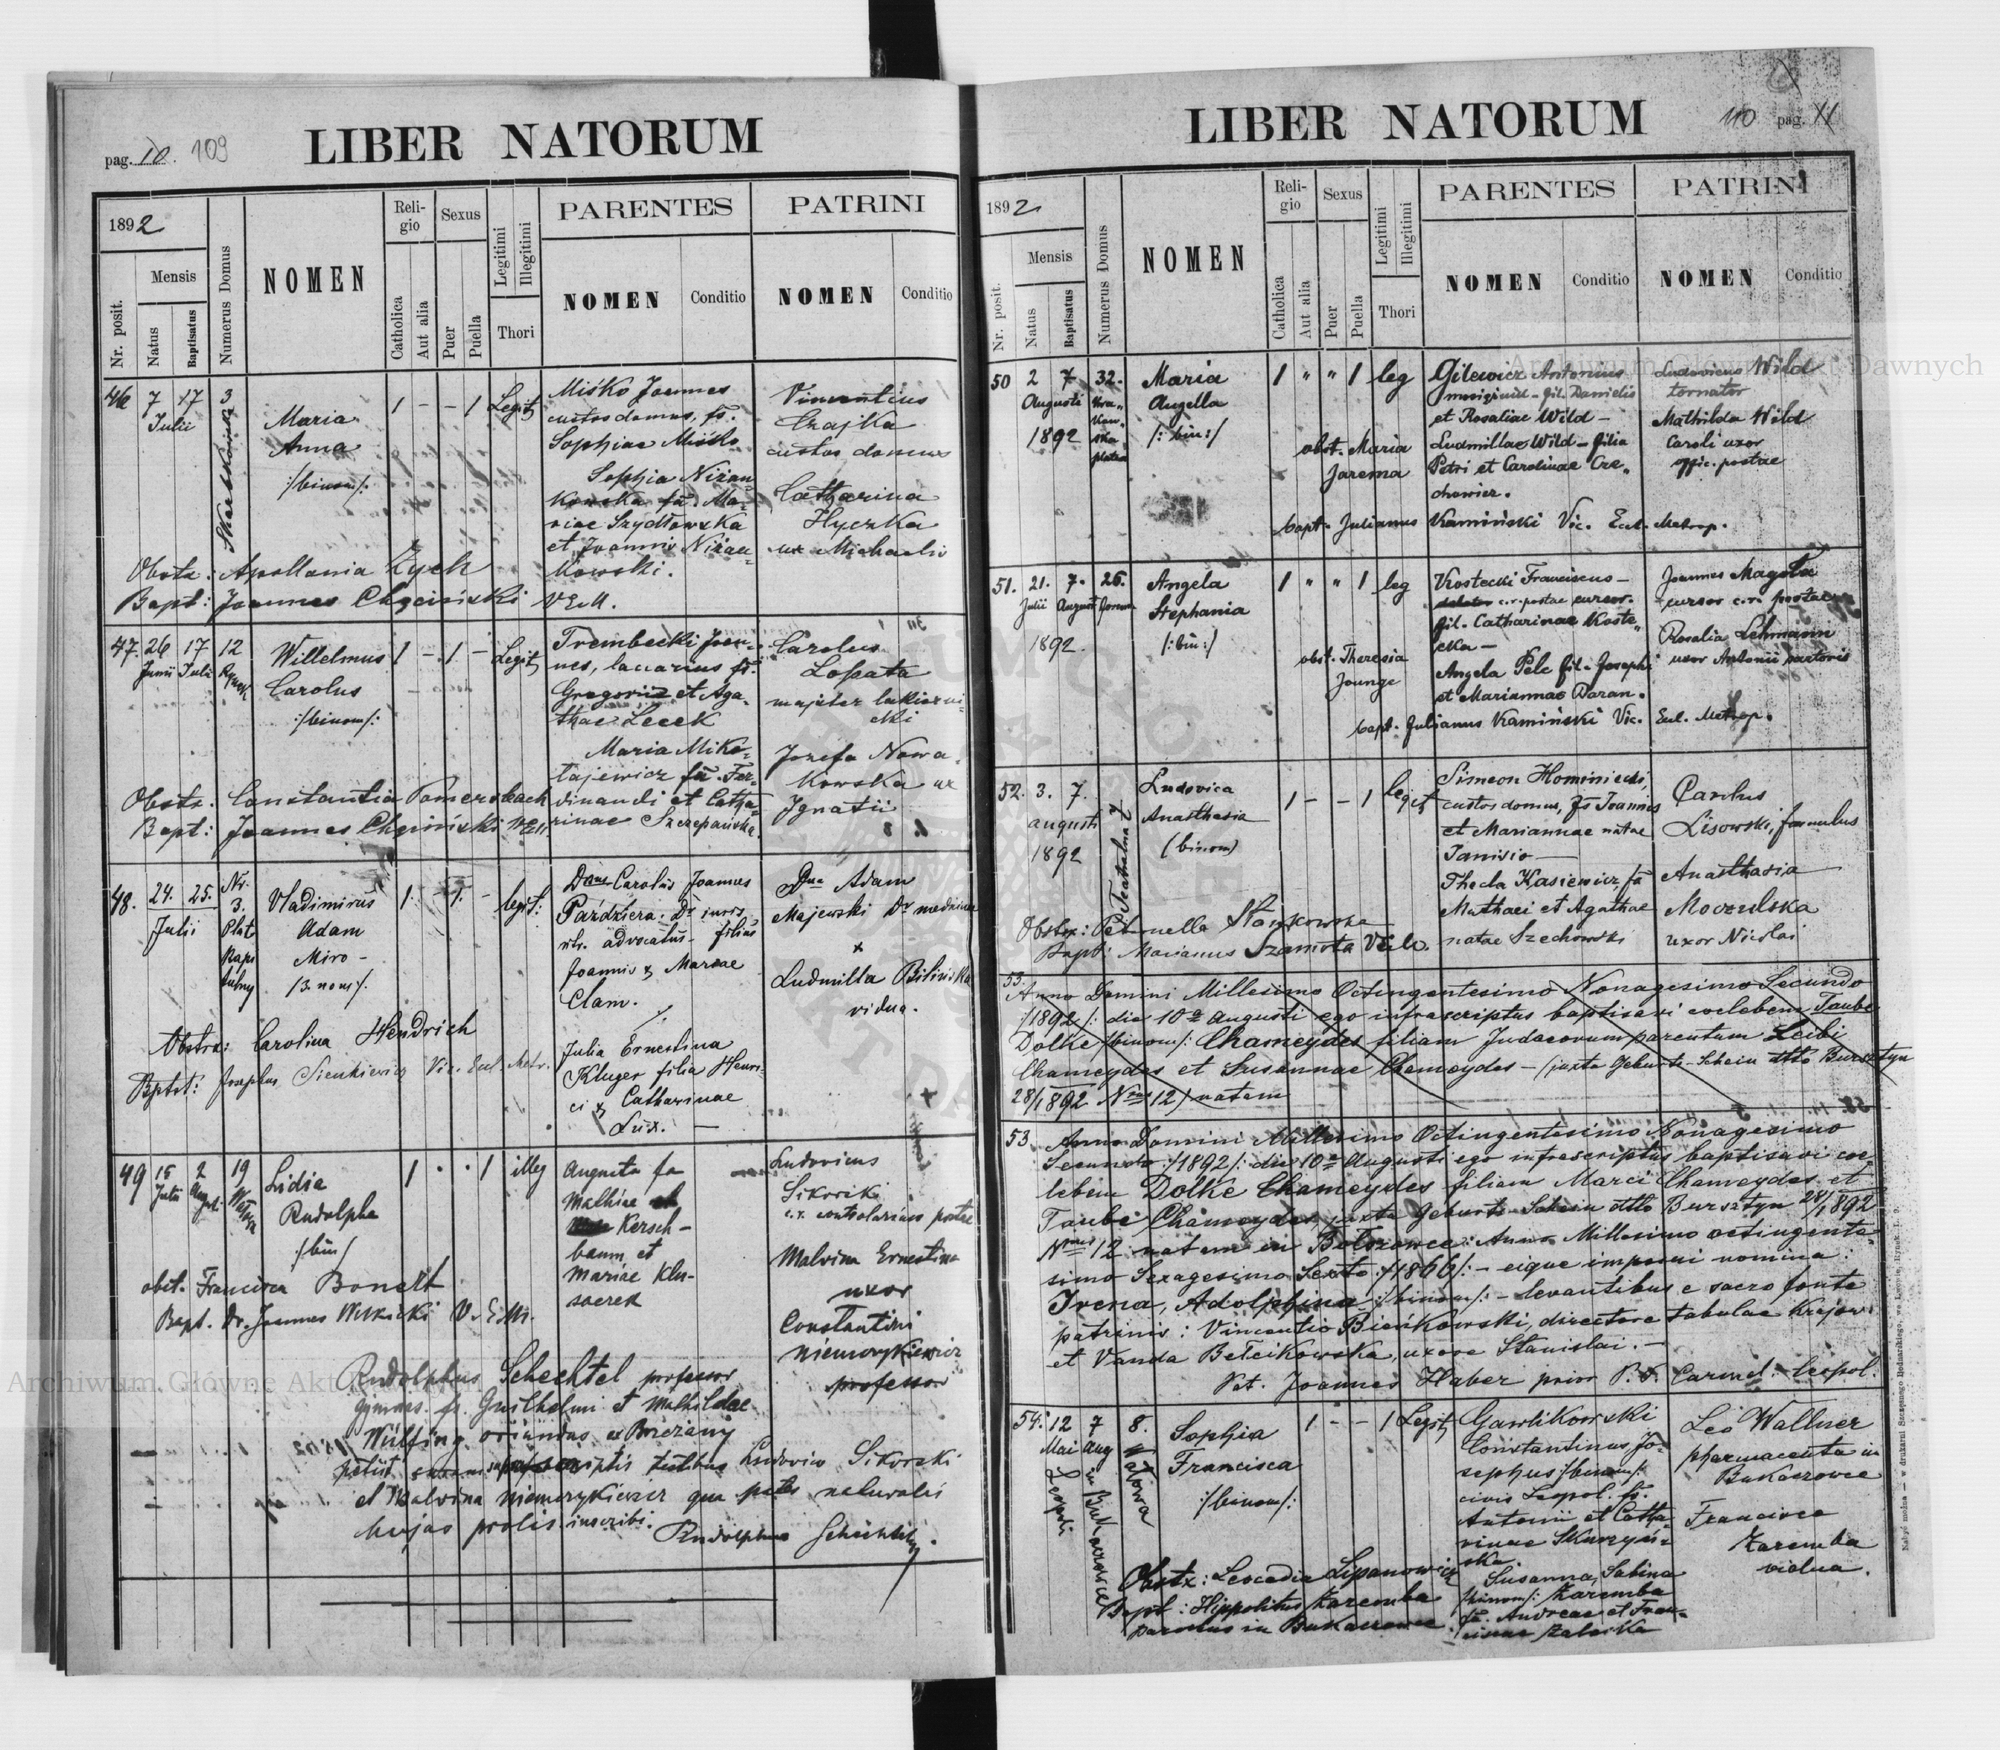 pag. 10. 109
LIBER NATORUM
1892
Nr. posit.
Mensis
Natus
Baptisatus
Numerus Domus
NOMEN
Religio
Catholica
Aut alia
Sexus
Puer
Puella
Legitimi
Illegitimi
Thori
PARENTES
NOMEN
Conditio
PATRINI
NOMEN
Conditio
46 7 17 3
Julii
Maria
Anna
/binom/:
1 - - 1 Legit
Miśko Joannes
custos domus, fs.
Sophiae Miśko
Sophia Niżan-
kowska fa. Ma-
riae Szydłowska
et Joannis Niżan-
kowski.
Vincentius
Czajka
custos domus
Catharina
Hyczka
ux Michaelis
Obstx: Apollonia Zych
Bapt: Joannes Chęciński VEM.
47. 26 17 12
Junii Julii Rynek
Willelmus
Carolus
:/binom/:
1 - 1 - Legit
Trembecki Joan-
nes, lacarius fs.
Gregorii et Aga-
thae Lecek
Maria Miko-
łajewicz fa. Fer-
dinandi et Catha-
rinae Szczepańska.
Carolus
Łopata
majster lakierni-
cki
Josefa Nowa-
kowska ux
Ignatii
Obstx. Constantia Pomersbach
Bapt: Joannes Chęciński VEM.
48. 24. 25. Nr.
3.
Julii
Vladimirus
Adam
Miro-
/3 nom/.
1. 1. - legit:
Dnus Carolus Joannes
Paździera. Dr juris
advocatus - filius
Joannis & Mariae
Clam.
Julia Ernestina
Kluger filia Henri-
ci & Catharinae
Lux. -
Adam
Majewski Dr medicinae
x
Ludmilla Bilińska
vidua.
Obstrx: Carolina Hendrich
Bptst: Josephus Sienkiewicz Vic. Eccl. Metr.
49 15 2 19
Julii
Lidia
Rudolpha
/bin/
1 . . 1 illeg
Augusta fa
Mathiae
Kersch-
baum et
Mariae Klu-
saerek
Ludovicus
Sikorski
c.r. controlarius postae
Malvina Ernestina
uxor
Constantini
Niemczykiewicz
professor
obst. Francisca Bonelt
Bapt. Dr. Joannes V. E. M.
Rudolphus Schechtel professor
gymnas. fs. Guilhelmi et Mathildae
Wülfing oriundus ex Brzeżany
petiit testibus Ludovico Sikorski
et Malvina Niemczykiewicz qua pater naturalis
hujus prolis inscribi.
Rudolphus Schechtel.
110 pag. XI
LIBER NATORUM
1892
Nr. posit.
Mensis
Natus
Baptisatus
Numerus Domus
NOMEN
Religio
Catholica
Aut alia
Sexus
Puer
Puella
Legitimi
Illegitimi
Thori
PARENTES
NOMEN
Conditio
PATRINI
NOMEN
Conditio
50 2 7 32.
Augusti
1892
Maria
Angella
/: bin:/
1 " " 1 leg
Gilewicz Antonius
fil. Danielis
et Rosaliae Wild -
Ludmillae Wild - filia
Petri et Carolinae Cze-
chowicz.
Ludovicus Wild
tornator
Mathilda Wild
Caroli uxor
offic. postae
obst. Maria
Jarema
bapt. Julianus Kamiński Vic. Eccl. Metrop.
51. 21. 7. 26.
Julii August
1892.
Angela
Stephania
/:bin:/
1 " " 1 leg
Kostecki Franciscus -
c.r. postae cursor.
fil. Catharinae Koste-
cka -
Angela Pelc fil. Josephi
et Mariannae Baran.
Joannes Magola
cursor c.r. postae
Rosalia Lehmann
uxor Antonii sartoris
obst. Theresia
Jounge
bapt. Julianus Kamiński Vic. Eccl. Metrop.
52. 3. 7.
augusti
1892
Teatralna 7
Ludovica
Anasthasia
(binom)
1 - - 1 legit
Simeon Hominiecki,
custos domus, fs Joannis
et Mariannae natae
Janisio -
Thecla Kasiewicz, fa
Mathaei et Agathae
natae Szechowski
Carolus
Lisowski, famulus
Anasthasia
Moczulska
uxor Nicolai
Obstx: Petronella Stankowska
Bapt: Marianus Szamota VEM.
53.
Anno Domini Millesimo Octingentesimo Nonagesimo Secundo
:/1892/: die 10a Augusti ego infrascriptus baptisavi coelebem Taube
Dolke /binom/: Chameydes filiam Judaeorum parentum Leibi
Chameydes et Susannae Chameydes - (juxta Geburts-Schein dtto Bursztyn
28/1 1892 Nrus 12) natam
53.
Anno Domini Millesimo Octingentesimo Nonagesimo
Secundo :/1892/: die 10a Augusti ego infrascriptus baptisavi coe-
lebem Dolke Chameydes filiam Marci Chameydes et
Taube Chameydes, juxta Geburts Schein dtto Bursztyn 28/1 1892
Nrus 12 natam in Bołszowce: Anno Millesimo octingente-
simo Sexagesimo Sexto :/1866/: - eique imposui nomina:
Irena, Adolphina :/binom/: - Levantibus e sacro fonte
patrinis: Vincentio Bieńkowski, directore tabulae krajow.
et Vanda Bełcikowska, uxore Stanislai. -
Pat. Joannes Haber prior P.P. Carmel. Leopol.
54. 12 7 8.
Mai Aug Watowa
Leopoli
in Bukaczowce
Sophia
Francisca
:/binom/:
1 - - 1 Legit
Gawlikowski
Constantinus Jo-
sephus /binom/:
civis Leopol. fs.
Antonii et Catha-
rinae Skurzyń-
ska.
Susanna, Sabina
/binom/: Zaremba
fa. Andreae et Fran-
ciscae Zaleska
Leo Wallner
pharmaceuta in
Bukaczowce
Francisca
Zaremba
vidua.
Obstx: Leocadia Lipanowicz
Bapt: Hippolitus Zaremba
parochus in Bukaczowce
Archiwum Główne Akt Dawnych